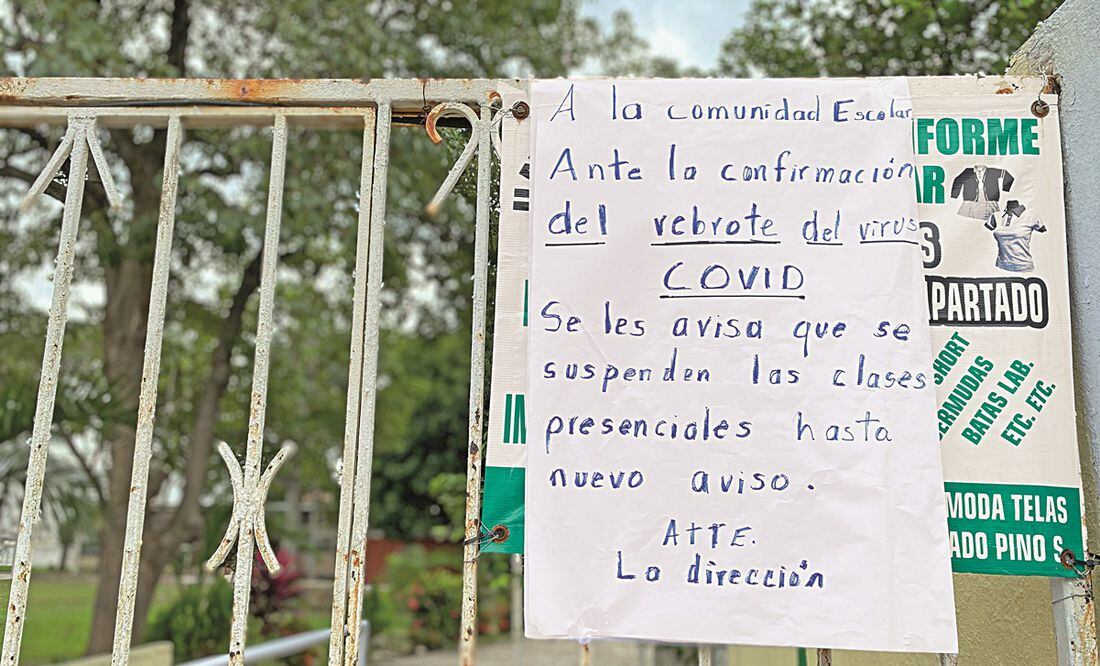 A la comunidad Escolar
Ante la confirmación
del rebrote del virus
COVID
Se les avisa que se
suspenden las clases
presenciales hasta
nuevo aviso.
ATTE.
La dirección
FORME
AR
S
PARTADO
SHORT
BERMUDAS
BATAS LAB.
ETC. ETC.
IN
MODA TELAS
ADO PINO S